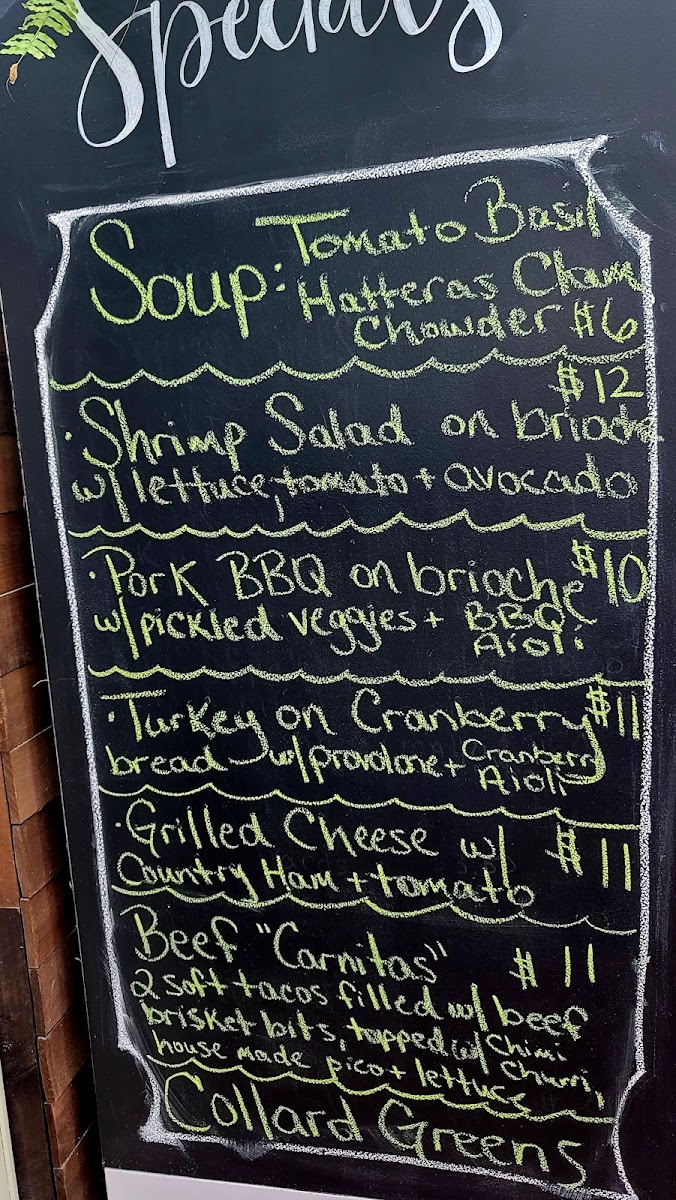 Specials
Soup: Tomato Basil
Hatteras Clam
Chowder $6
$12
· Shrimp Salad on brioche
w/ lettuce, tomato + avocado
· Pork BBQ on brioche $10
w/ pickled veggies + BBQ
Aioli
· Turkey on Cranberry $11
bread w/ provolone + Cranberry
Aioli
· Grilled Cheese w/ $11
Country Ham + tomato
Beef "Carnitas" $11
2 soft tacos filled w/ beef
brisket bits, topped w/ Chimi
Churri,
house made pico + lettuce
Collard Greens